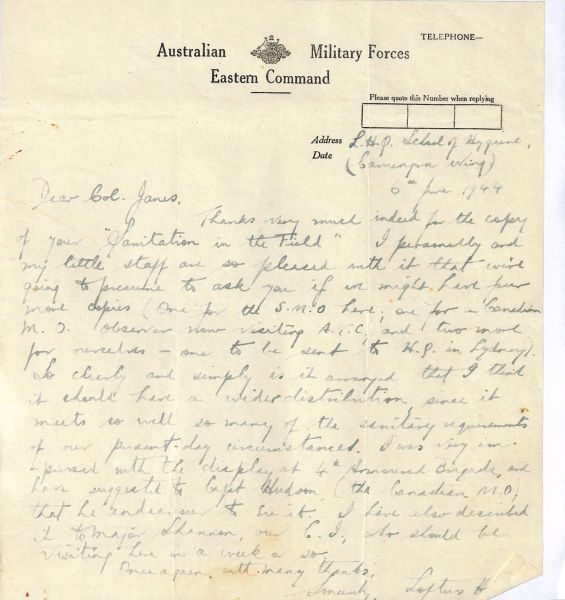 TELEPHONE—
Australian Military Forces
Eastern Command
Please quote this Number when replying
Address L.H.Q. School of Hygiene,
Date (Canungra Wing)
6th June 1944
Dear Col. Janes,
Thanks very much indeed for the copy
of your "Sanitation in the Field" I personally and
my little staff are so pleased with it that we're
going to presume to ask you if we might have four
more copies (One for the S.M.O here, one for a Canadian
M.O. Observer now visiting and two more
for ourselves – one to be sent to H.Q. in Sydney).
So clearly and simply is it arranged that I think
it should have a wider distribution, since it
meets so well so many of the sanitary requirements
of our present-day circumstances. I was very im-
-pressed with the display at 4th Armoured Brigade, and
have suggested to Capt Hudson, (the Canadian M.O)
that he endeavour to see it. I have also described
it to Major Shannon, our C.I., who should be
visiting here in a week or so.
Once again, with many thanks,
Sincerely, Loftus H